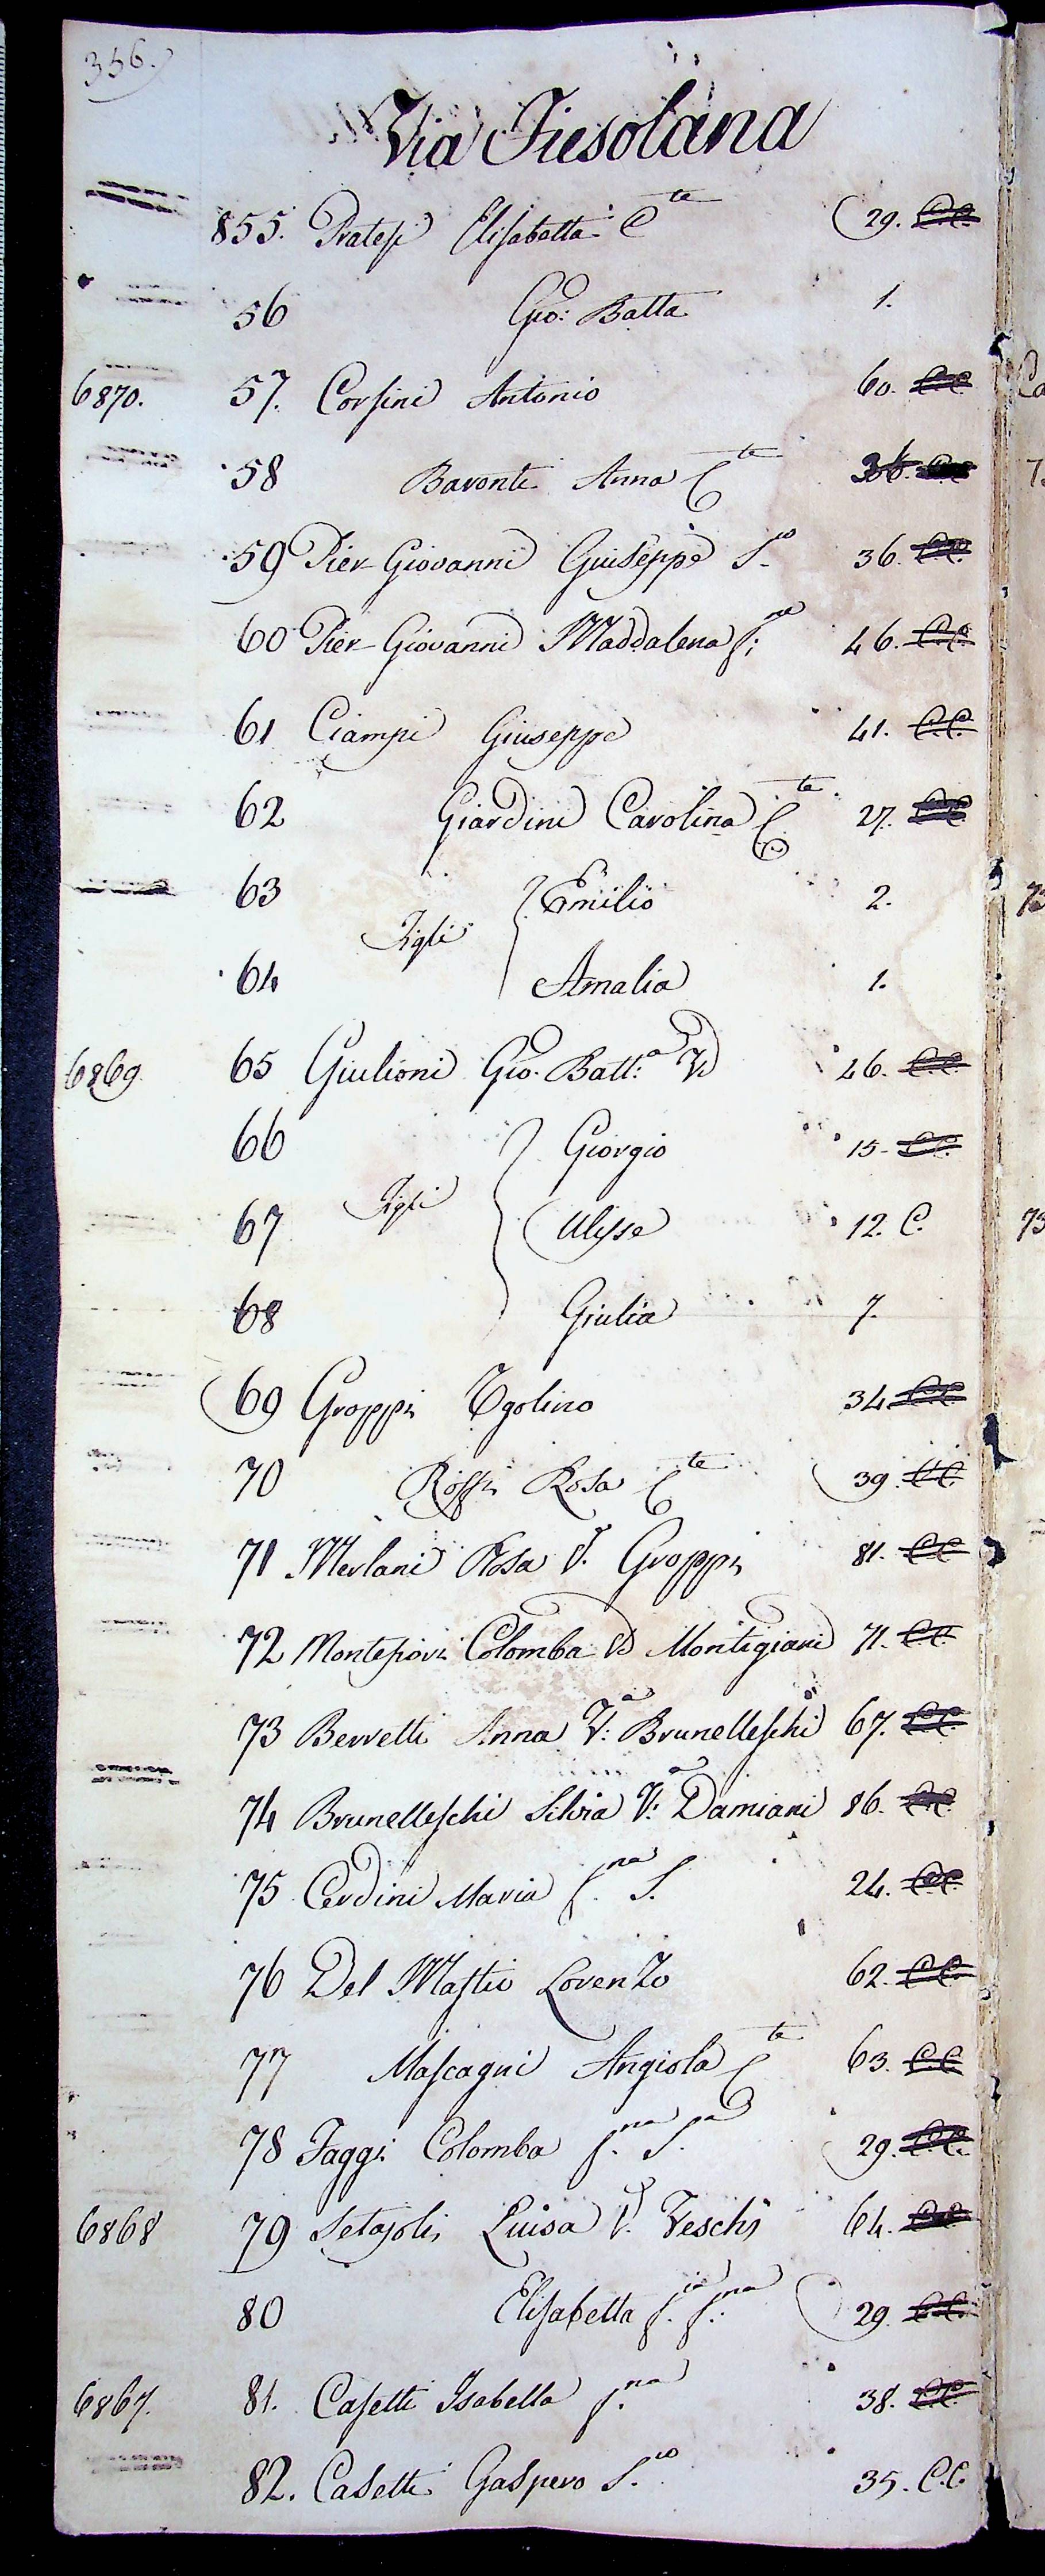 356.
Via Fiesolana
855. Pratesi Elisabetta C.te 29. C.C.
56 Gio: Batta 1.
6870. 57. Corsini Antonio 60. C.C.
58 Baronti Anna C.te 36. C.C.
59 Pier Giovanni Giuseppe S.o 36. C.C.
60 Pier Giovanni Maddalena f.na 46. C.C.
61 Ciampi Giuseppe 41. C.C.
62 Giardini Carolina C.te 27. C.C.
63 Emilio 2.
Figli
64 Amalia 1.
6869. 65 Giulioni Gio. Batt.a V.o 46. C.C.
66 Giorgio 15. C.C.
Figli
67 Ulisse 12. C.
68 Giulia 7.
69 Groppi Ugolino 34. C.C.
70 Rossi Rosa C.te 39. C.C.
71 Merlani Rosa V. Groppi 81. C.C.
72 Colomba V. Montigiani 71. C.C.
73 Berretti Anna V.a Brunelleschi 67. C.C.
74 Brunelleschi Silvia V.a Damiani 86. C.C.
75 Cerdini Maria f.na S. 24. C.C.
76 Del Mastio Lorenzo 62. C.C.
77 Mascagni Angiola C.te 63. C.C.
78 Faggi Colomba f.na S. 29. C.C.
6868 79 Setajoli Luisa V. Feschi 64. C.C.
80 Elisabetta f.ia f.na 29. C.C.
6867. 81. Casetti Isabella f.na 38. C.C.
82. Casetti Gaspero S.o 35. C.C.